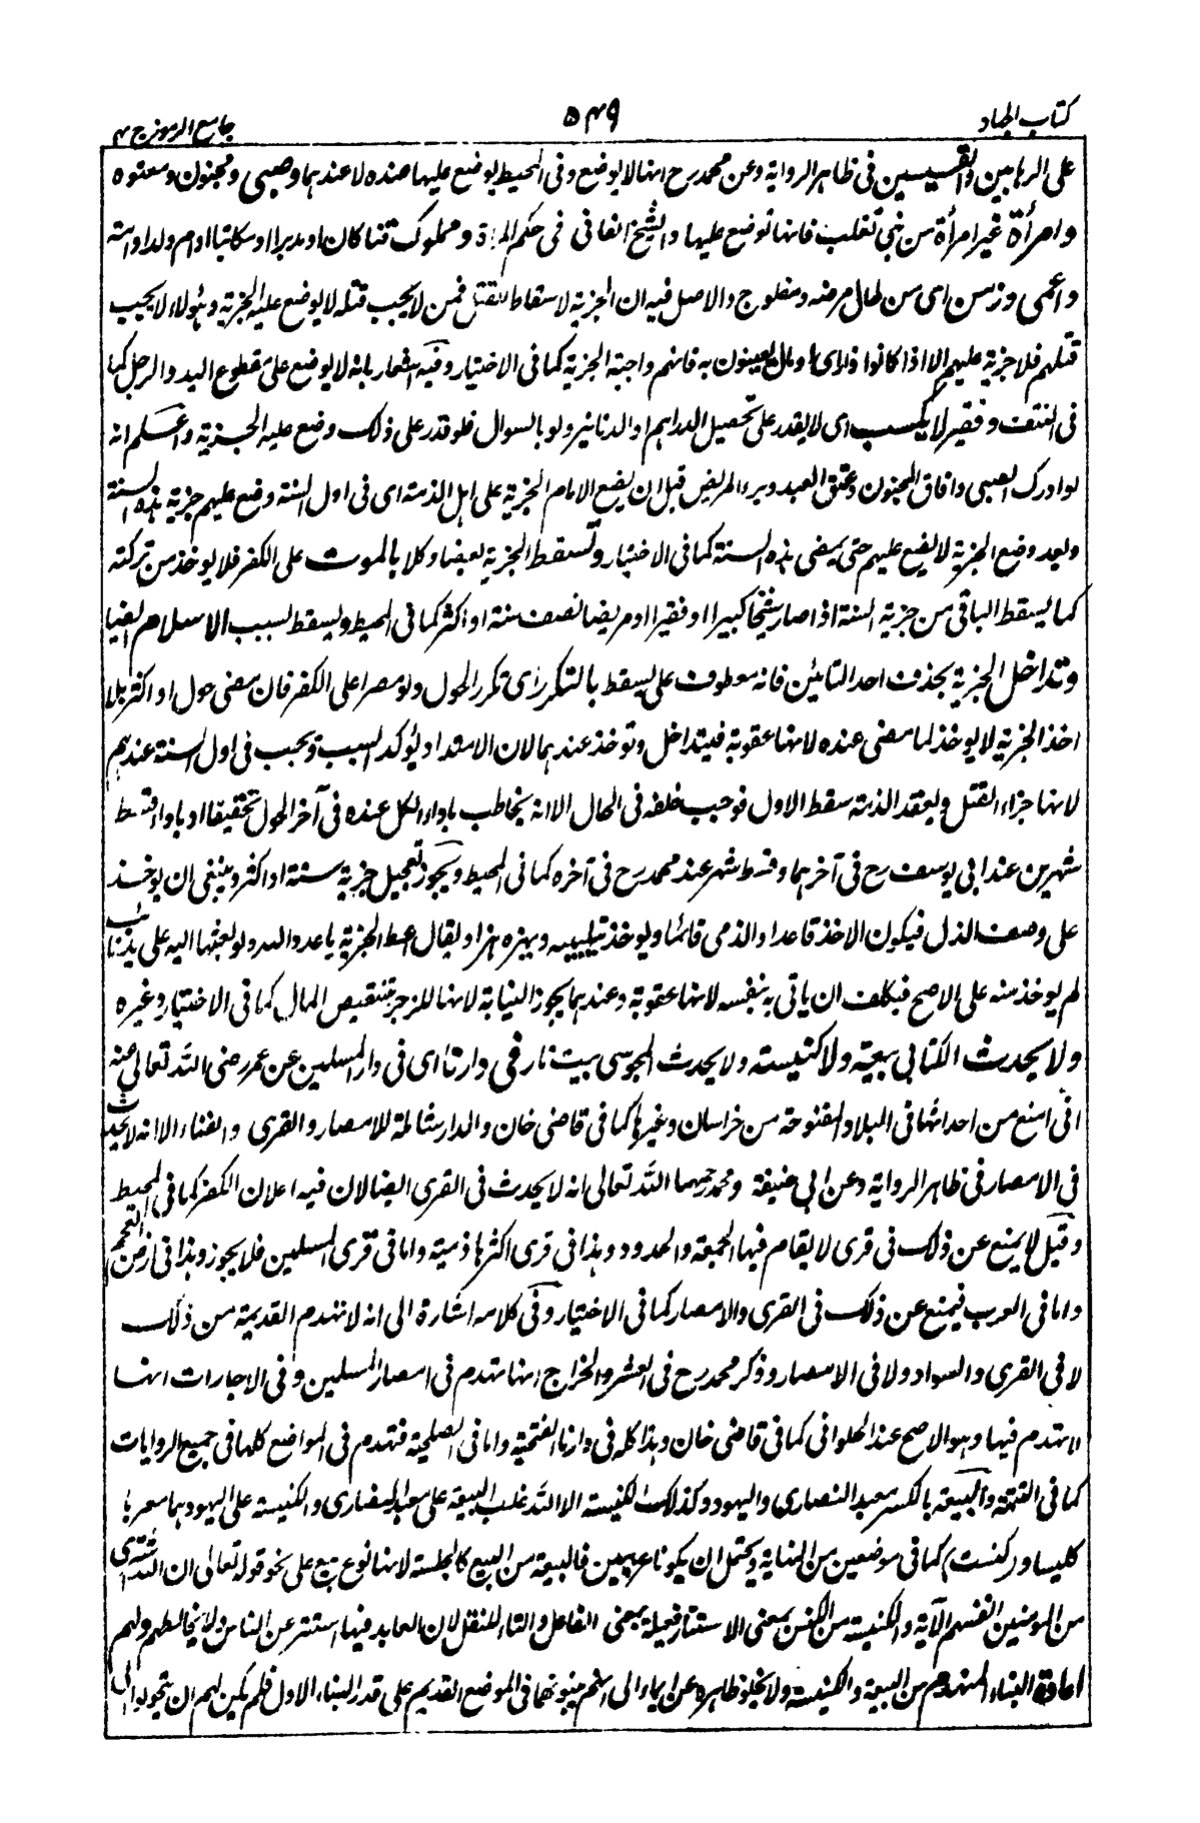 كتاب الجهاد
٥٤٩
جامع الرموز ج ٤
على الراهبين والقسيسين فى ظاهر الرواية وعن محمد رح انها لا يوضع وفى المحيط يوضع عليها عنده لا عندهما وصبى ومجنون ومعتوه
وامرأة غير امرأة من بنى تغلب فانها توضع عليها والشيخ الفانى فى حكم المرأة ومملوك قنا كان او مدبرا او مكاتبا او ام ولد او ابنه
واعمى وزمن اى من طال مرضه ومفلوج والاصل فيه ان الجزية لاسقاط القتل فمن لا يجب قتله لا يوضع عليه الجزية وهؤلاء لا يجب
قتلهم فلا جزية عليهم الا اذا كانوا ذا راى او مال يعينون به فانهم واجبة الجزية كما فى الاختيار وفيه اشعار بانه لا يوضع على مقطوع اليد والرجل كما
فى النتف وفقير لا يكسب اى لا يقدر على تحصيل الدراهم او الدنانير ولو بالسوال فلو قدر على ذلك وضع عليه الجزية واعلم انه
لو ادرك الصبى وافاق المجنون وعتق العبد وبرء المريض قبل ان يضع الامام الجزية على اهل الذمة اى فى اول السنة وضع عليهم جزية هذه السنة
وبعد وضع الجزية لا يضع عليهم حتى يمضى هذه السنة كما فى الاختيار وتسقط الجزية بعضا وكلا بالموت على الكفر فلا يوخذ من تركته
كما يسقط الباقى من جزية السنة اذا صار شيخا كبيرا او فقيرا او مريضا نصف سنة او اكثر كما فى المحيط ويسقط بسبب الاسلام ايضا
وتداخل الجزية بحذف احد التائين فانه معطوف على يسقط بالتكرر اى تكرر الحول ولو مصرا على الكفر فان مضى حول او اكثر بلا
اخذ الجزية لا يوخذ لما مضى عنده لانها عقوبة فيتداخل وتوخذ عندهما لان الامتداد يؤكد السبب ويجب فى اول السنة عندهم
لانها جزاء القتل وبعقد الذمة سقط الاول فوجب خلفه فى الحال الا انه يخاطب باداء الكل عنده فى آخر الحول تخفيفا او باداء قسط
شهرين عند ابى يوسف رح فى آخرهما وقسط شهر عند محمد رح فى آخره كما فى المحيط ويجوز تعجيل جزية سنة او اكثر وينبغى ان يوخذ
على وصف الذل فيكون الاخذ قاعدا والذمى قائما ويوخذ بتلبيبه ويهزه هزا ويقال اعط الجزية يا عدو الله ولو بعثها اليه على يد نائب
لم يوخذ منه على الاصح فيكلف ان ياتى به بنفسه لانها عقوبة وعندهما يجوز النيابة لانها للزجر بتنقيص المال كما فى الاختيار وغيره
ولا يحدث الكتابى بيعة ولا كنيسة ولا يحدث المجوسى بيت نار فى دارنا اى فى دار المسلمين عن عمر رضى الله تعالى عنه
انى امنع من احداثها فى البلاد المفتوحة من خراسان وغيرها كما فى قاضى خان والدار شاملة للامصار والقرى والفناء الا انه لا يحدث
فى الامصار فى ظاهر الرواية وعن ابى حنيفة ومحمد رحمهما الله تعالى انه لا يحدث فى القرى ايضا لان فيه اعلان الكفر كما فى المحيط
وقيل لا يمنع عن ذلك فى قرى لا يقام فيها الجمعة والحدود وهذا فى قرى اكثرها ذمية واما فى قرى المسلمين فلا يجوز وهذا فى ارض العجم
واما فى العرب فيمنع عن ذلك فى القرى والامصار كما فى الاختيار وفى كلامه اشارة الى انه لا تنهدم القديمة من ذلك
لا فى القرى والسواد ولا فى الامصار وذكر محمد رح فى العشر والخراج انها تهدم فى امصار المسلمين وفى الاجارات انها
لا تهدم فيها وهو الاصح عند الحلوانى كما فى قاضى خان وهذا كله فى دارنا الفتحية واما فى الصلحية فتهدم فى المواضع كلها فى جميع الروايات
كما فى التتمة والبيعة بالكسر معبد النصارى واليهود وكذلك الكنيسة الا انه غلب البيعة على معبد النصارى والكنيسة على اليهود وهما معربا
كليسا و (كنشت) كما فى موضعين من النهاية ويحتمل ان يكونا عربيين فالبيعة من البيع كالجلسة لانها نوع بيع على نحو قوله تعالى ان الله اشترى
من المومنين انفسهم الآية والكنيسة من الكنس بمعنى الاستتار فعيلة بمعنى الفاعل والتاء للنقل لان العابد فيها استتر عن الناس لا يخالطهم ولهم
اعادة البناء المنهدم من البيعة والكنيسة ولا يخلو ظاهره عن ايماء الى انهم يبنونهما فى الموضع القديم على قدر البناء الاول فلم يكن لهم ان يتحولوا الى